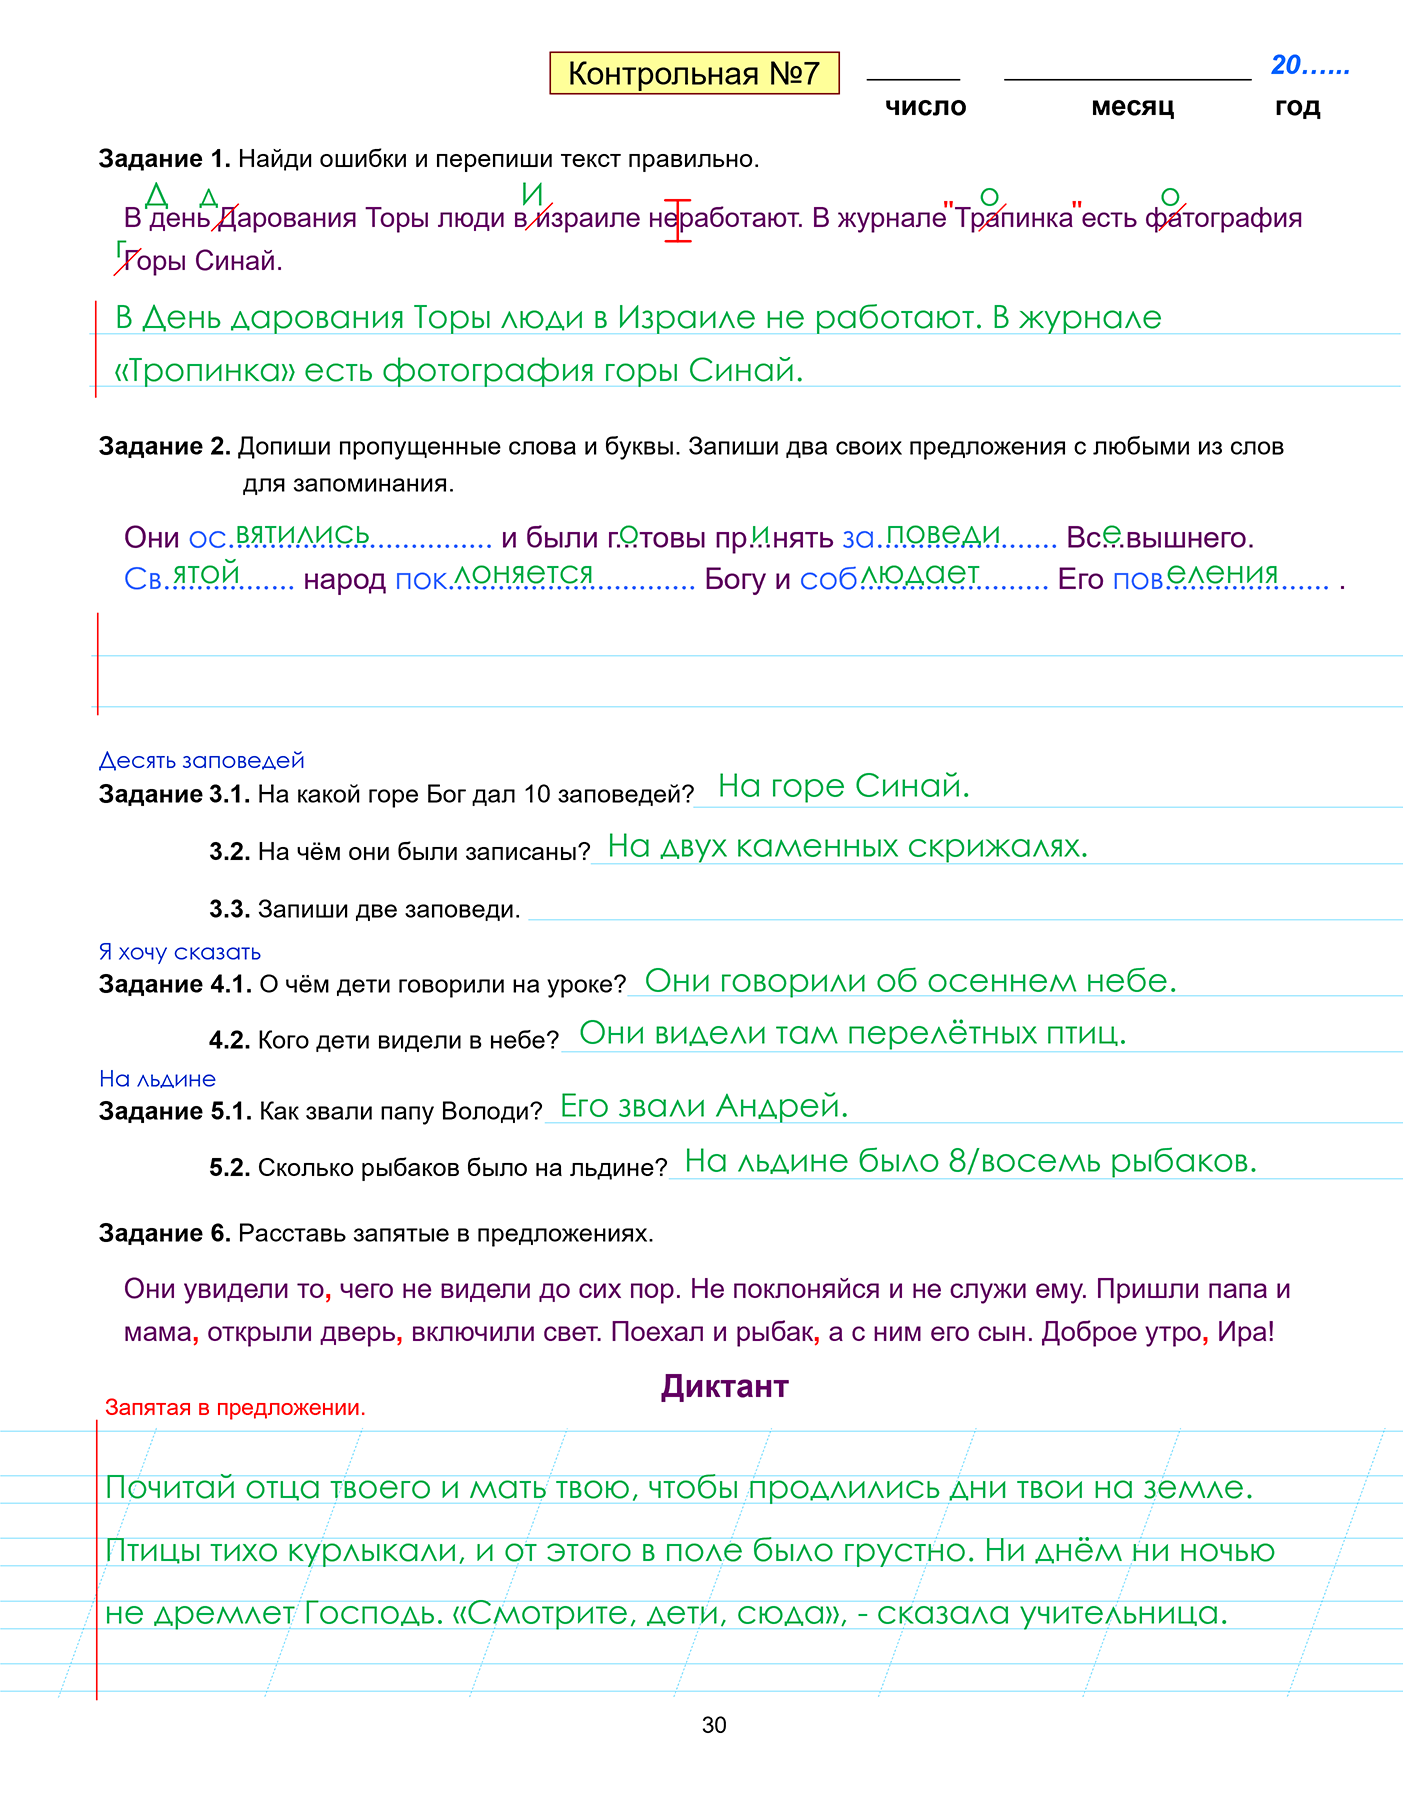 Контрольная №7 20......
число месяц год
Задание 1. Найди ошибки и перепиши текст правильно.
Д д И о о
В день Дарования Торы люди в израиле неработают. В журнале"Трапинка"есть фатография
г
Горы Синай.
В День дарования Торы люди в Израиле не работают. В журнале
«Тропинка» есть фотография горы Синай.
Задание 2. Допиши пропущенные слова и буквы. Запиши два своих предложения с любыми из слов
для запоминания.
Они освятились и были готовы принять заповеди Всевышнего.
Святой народ поклоняется Богу и соблюдает Его повеления .
Десять заповедей
Задание 3.1. На какой горе Бог дал 10 заповедей? На горе Синай.
3.2. На чём они были записаны? На двух каменных скрижалях.
3.3. Запиши две заповеди.
Я хочу сказать
Задание 4.1. О чём дети говорили на уроке? Они говорили об осеннем небе.
4.2. Кого дети видели в небе? Они видели там перелётных птиц.
На льдине
Задание 5.1. Как звали папу Володи? Его звали Андрей.
5.2. Сколько рыбаков было на льдине? На льдине было 8/восемь рыбаков.
Задание 6. Расставь запятые в предложениях.
Они увидели то, чего не видели до сих пор. Не поклоняйся и не служи ему. Пришли папа и
мама, открыли дверь, включили свет. Поехал и рыбак, а с ним его сын. Доброе утро, Ира!
Диктант
Запятая в предложении.
Почитай отца твоего и мать твою, чтобы продлились дни твои на земле.
Птицы тихо курлыкали, и от этого в поле было грустно. Ни днём ни ночью
не дремлет Господь. «Смотрите, дети, сюда», - сказала учительница.
30